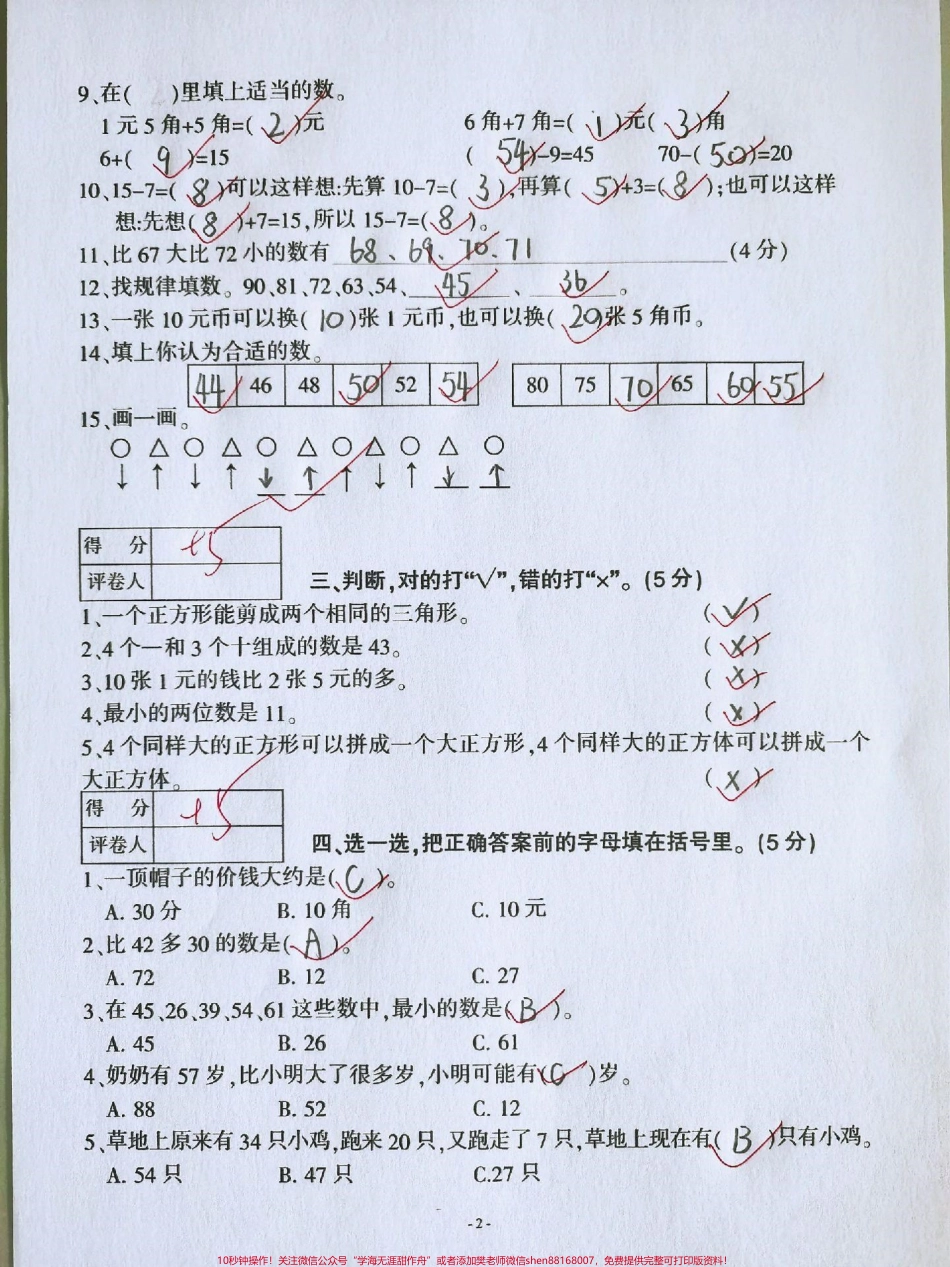 9、在(　)里填上适当的数。
1元5角+5角=( 2 )元　6角+7角=( 1 )元( 3 )角
6+( 9 )=15　( 54 )-9=45　70-( 50 )=20
10、15-7=( 8 )可以这样想:先算10-7=( 3 ),再算( 5 )+3=( 8 );也可以这样
想:先想( 8 )+7=15,所以15-7=( 8 )。
11、比67大比72小的数有 68、69、70、71 (4分)
12、找规律填数。90、81、72、63、54、 45 、 36 。
13、一张10元币可以换( 10 )张1元币,也可以换( 20 )张5角币。
14、填上你认为合适的数。
44 46 48 50 52 54　80 75 70 65 60 55
15、画一画。
○ △ ○ △ ○ △ ○ △ ○ △ ○
↓ ↑ ↓ ↑ ↓ ↑ ↑ ↓ ↑ ↓ ↑
得　分 +5
评卷人
三、判断,对的打“√”,错的打“×”。(5分)
1、一个正方形能剪成两个相同的三角形。 ( √ )
2、4个一和3个十组成的数是43。 ( × )
3、10张1元的钱比2张5元的多。 ( × )
4、最小的两位数是11。 ( × )
5、4个同样大的正方形可以拼成一个大正方形,4个同样大的正方体可以拼成一个
大正方体。 ( × )
得　分 +5
评卷人
四、选一选,把正确答案前的字母填在括号里。(5分)
1、一顶帽子的价钱大约是( C )。
A. 30分　B. 10角　C. 10元
2、比42多30的数是( A )。
A. 72　B. 12　C. 27
3、在45、26、39、54、61这些数中,最小的数是( B )。
A. 45　B. 26　C. 61
4、奶奶有57岁,比小明大了很多岁,小明可能有( C )岁。
A. 88　B. 52　C. 12
5、草地上原来有34只小鸡,跑来20只,又跑走了7只,草地上现在有( B )只有小鸡。
A. 54只　B. 47只　C.27只
-2-
10秒钟操作！关注微信公众号“学海无涯甜作舟”或者添加樊老师微信shen88168007，免费提供完整可打印版资料！